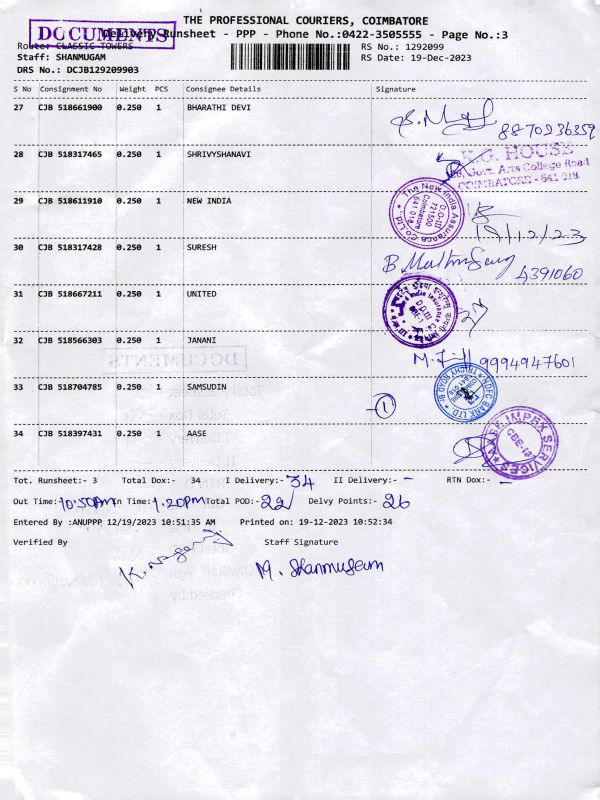 THE PROFESSIONAL COURIERS, COIMBATORE
DOCUMENTS
Delivery Runsheet - PPP - Phone No.:0422-3505555 - Page No.:3
Route: CLASSIC TOWERS
RS No.: 1292099
Staff: SHANMUGAM
RS Date: 19-Dec-2023
DRS No.: DCJB129209903
S No Consignment No Weight PCS Consignee Details Signature
27 CJB 518661900 0.250 1 BHARATHI DEVI
8870236359
28 CJB 518317465 0.250 1 SHRIVYSHANAVI
K.G. HOUSE
Govt. Arts College Road
COIMBATORE - 641 018.
29 CJB 518611910 0.250 1 NEW INDIA
The New India Assurance Co. Ltd.
D.O-III
721500
Coimbatore
641 018
19/12/23
30 CJB 518317428 0.250 1 SURESH
4391060
31 CJB 518667211 0.250 1 UNITED
D.O.III
CBE-1
32 CJB 518566303 0.250 1 JANANI
9994947601
33 CJB 518704785 0.250 1 SAMSUDIN
1
HDFC BANK LTD. TRICHY ROAD
34 CJB 518397431 0.250 1 AASE
AASE IMPEX SERVICES
CBE-18
Tot. Runsheet:- 3 Total Dox:- 34 I Delivery:- 34 II Delivery:- - RTN Dox:- -
Out Time: 10:50AM In Time: 1.20PM Total POD:- 22 Delvy Points:- 26
Entered By :ANUPPP 12/19/2023 10:51:35 AM Printed on: 19-12-2023 10:52:34
Verified By Staff Signature
M. Shanmugam